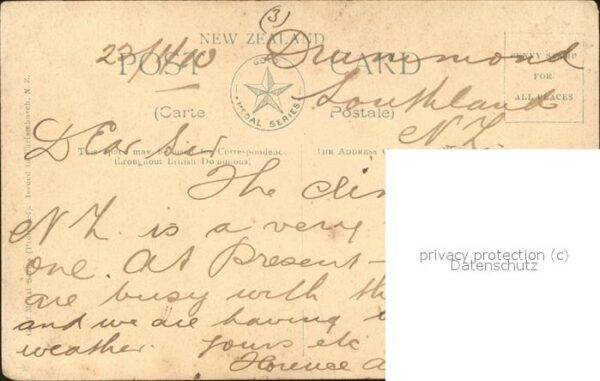 (3)
NEW ZEALAND
23/11/10 Drummond
POST CARD
GOLD MEDAL SERIES
PENNY STAMP
FOR
ALL PLACES
(Carte Postale)
Southland
N.Z.
Dear Sir
This space may be used for Correspondence
throughout British Dominions.
THE ADDRESS
The
N Z. is a very
one. At Present-
are busy with
and we are having
weather. Yours etc
Florence A
privacy protection (c)
Datenschutz
Christchurch, N. Z.